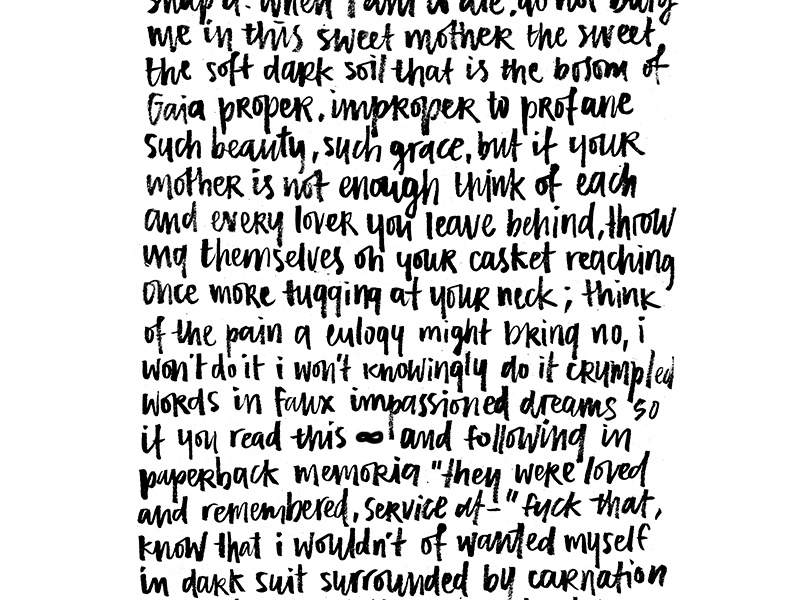 me in this sweet mother the sweet
the soft dark soil that is the bosom of
Gaia proper. improper to profane
such beauty, such grace, but if your
mother is not enough think of each
and every lover you leave behind, throw
ing themselves on your casket reaching
once more tugging at your neck; think
of the pain a eulogy might bring no, i
won't do it i won't knowingly do it crumpled
words in faux impassioned dreams so
if you read this ∞ and following in
paperback memoria "they were loved
and remembered, service at-" fuck that,
know that i wouldn't of wanted myself
in dark suit surrounded by carnation